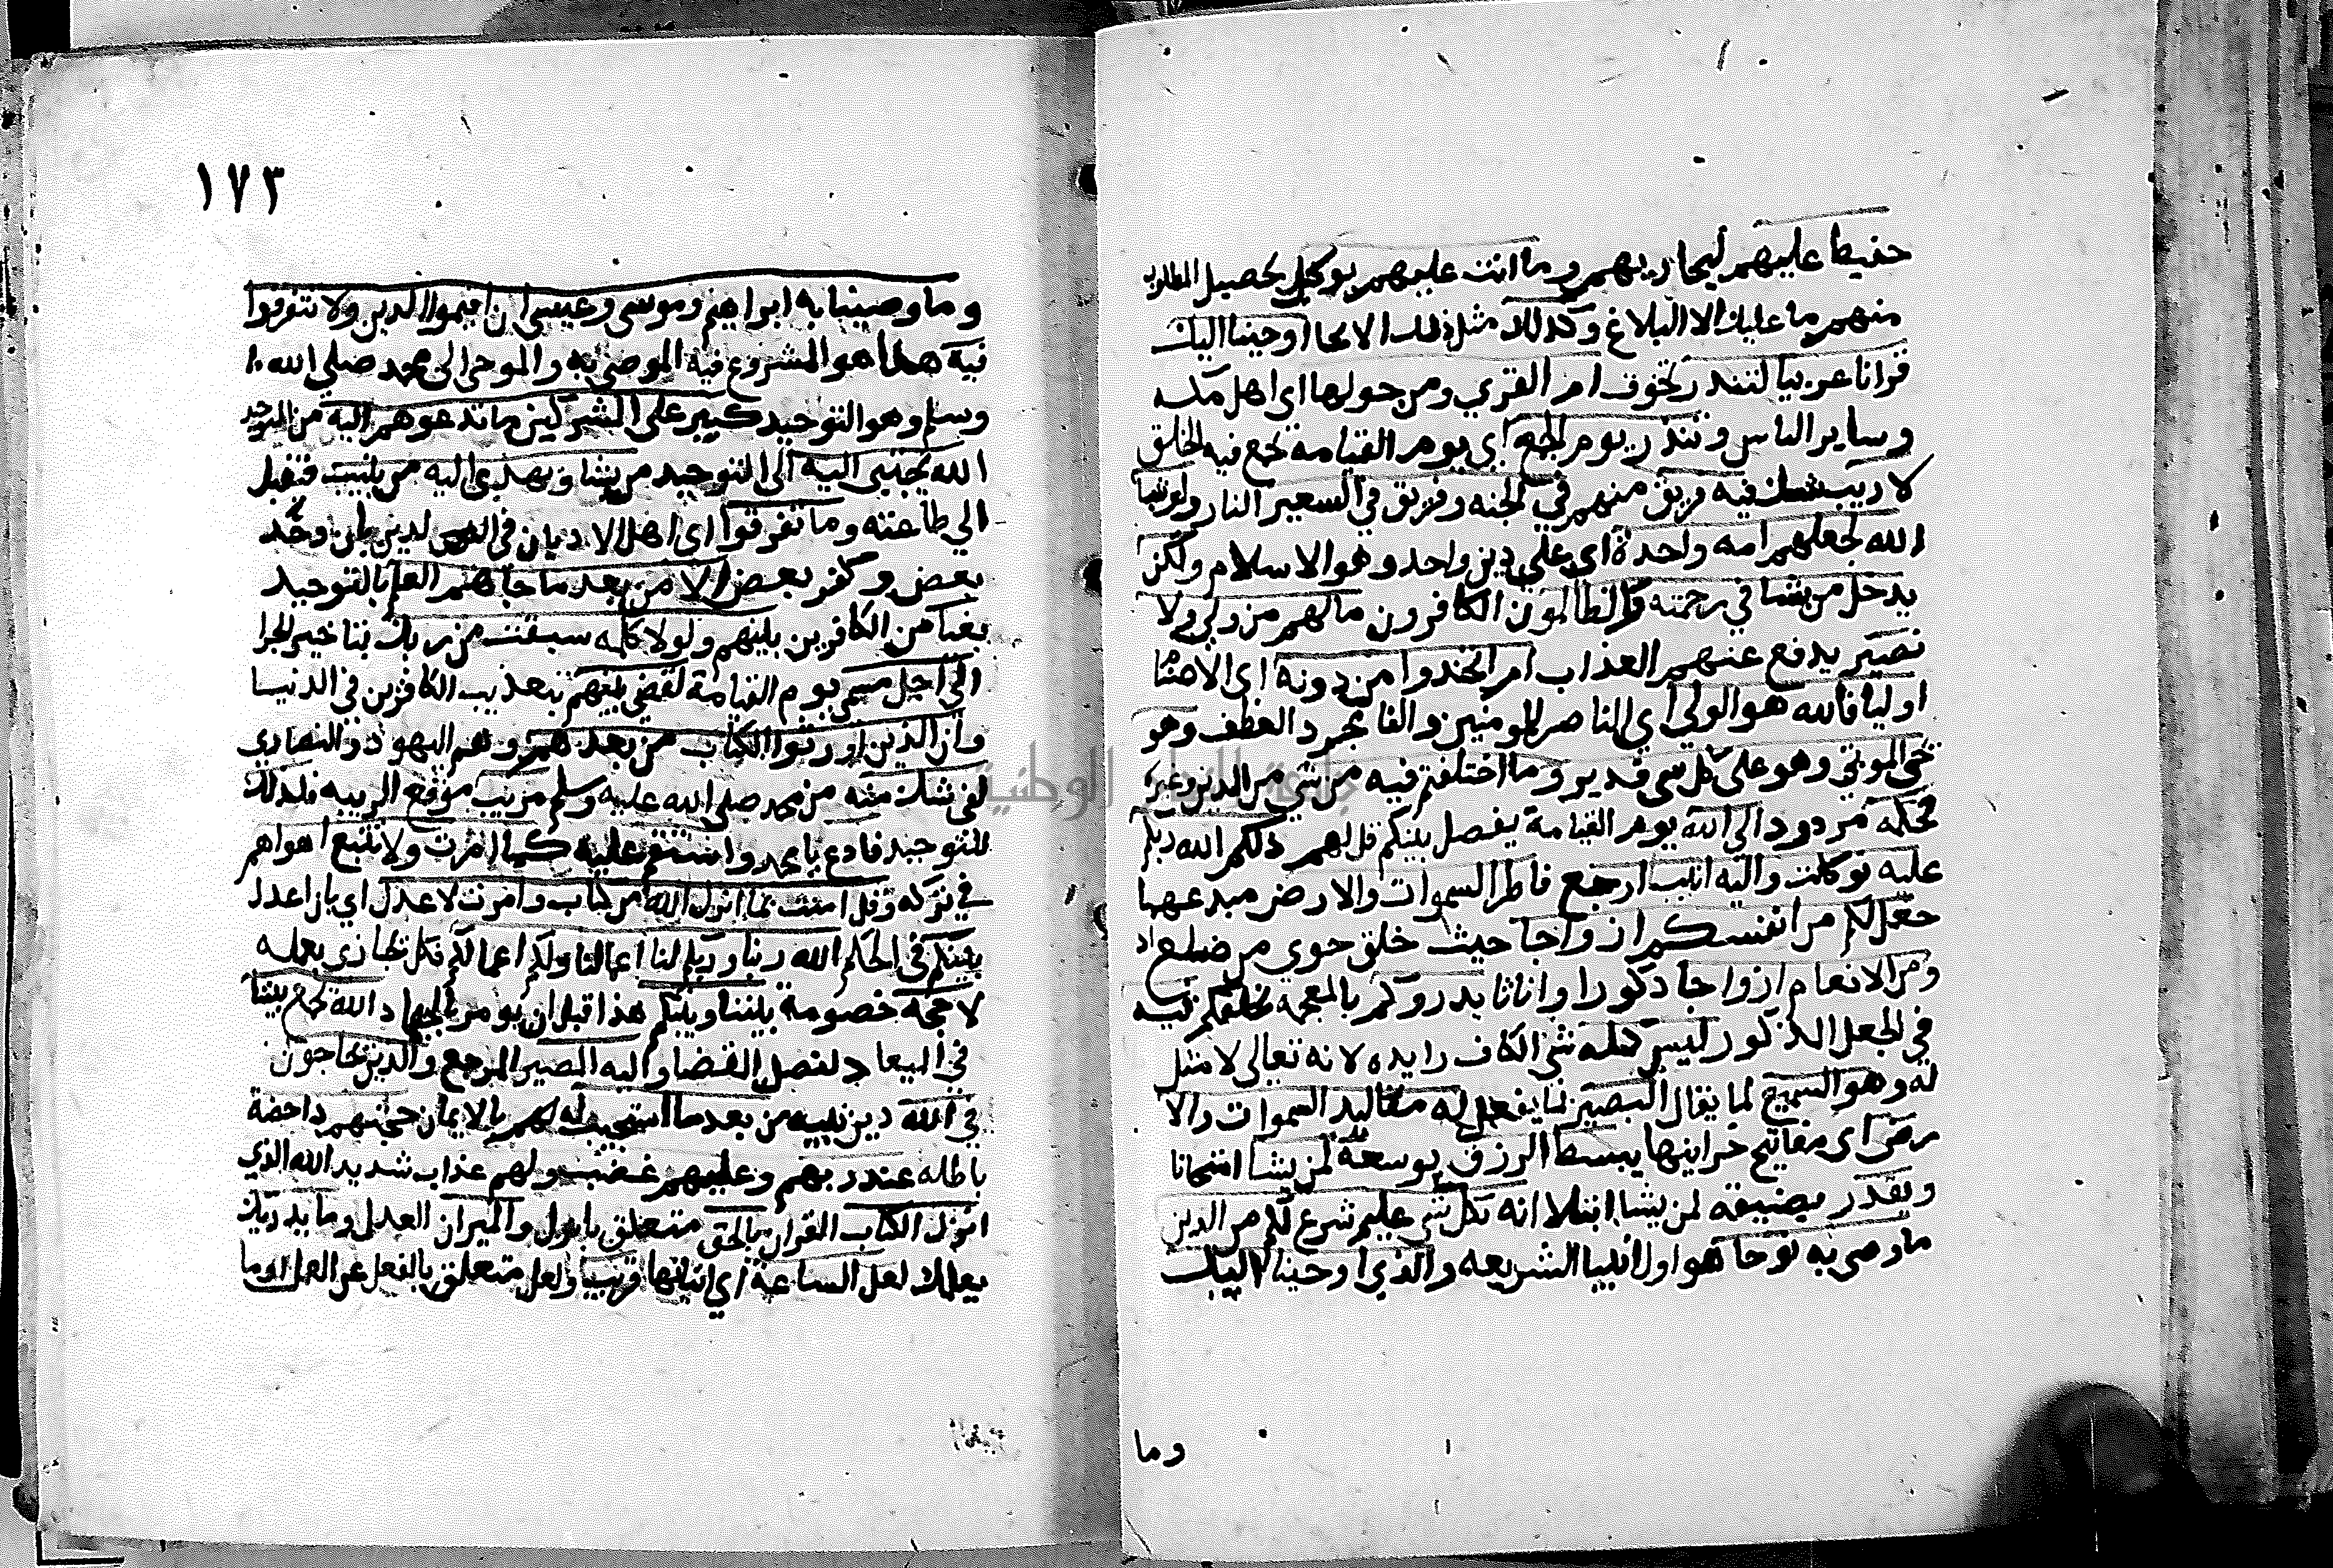 حفيظا عليهم ليجازيهم وما انت عليهم بوكيل تحصيل المطلوب
منهم ما عليك الا البلاغ وكذلك مثل ذلك الايحا اوحينا اليك
قرانا عربيا لتنذر تخوف ام القري ومن حولها اي اهل مكه
وساير الناس وتنذر يوم الجمع اي يوم القيامة تجمع فيه الخلق
لا ريب شك فيه فريق منهم في الجنه وفريق في السعير النار ولو شا
الله لجعلهم امه واحدة اي علي دين واحد وهو الاسلام ولكن
يدخل من يشا في رحمته والظالمون الكافرون مالهم من ولي ولا
نصير يدفع عنهم العذاب ام اتخذوا من دونه اي الاصنام
اوليا فالله هو الولي اي الناصر للمومنين والفا لمجرد العطف وهو
يحي الموتي وهو على كل شي قدير وما اختلفتم فيه من شي من الدين وغيره
فحكمه مردود الي الله يوم القيامة يفصل بينكم قل لهم ذلكم الله ربي
عليه توكلت واليه انيب ارجع فاطر السموات والارض مبدعهما
جعل لكم من انفسكم ازواجا حيث خلق حوي من ضلع اد
ومن الانعام ازواجا ذكورا واناثا يذروكم بالمعجمه يخلقكم فيه
في الجعل المذكور ليس كمثله شي الكاف زايده لانه تعالي لا مثل
له وهو السميع لما يقال البصير لما يفعل له مقاليد السموات والا
رض اي مفاتيح خزاينها يبسط الرزق يوسعه لمن يشا امتحانا
ويقدر يضيقه لمن يشا ابتلا انه بكل شي عليم شرع لكم من الدين
ما وصي به نوحا هو اول انبيا الشريعه والذي اوحينا اليك
وما
١٧٣
وما وصينا به ابراهيم وموسي وعيسي ان اقيموا الدين ولا تتفرقوا
فيه هذا هو المشروع فيه الموصي به والموحي الي محمد صلي الله
وسلم وهو التوحيد كبير علي المشركين ما تدعوهم اليه من التوحيد
الله يجتبي اليه الي التوحيد من يشا ويهدي اليه من ينيب فيقبل
الي طاعته وما تفرقوا اي اهل الاديان في الدين بان وحد
بعض وكفر بعض الا من بعد ما جاهم العلم بالتوحيد
بغيا من الكافرين بينهم ولولا كلمه سبقت من ربك بتاخير الجزا
الي اجل مسمي يوم القيامة لقضي بينهم بتعذيب الكافرين في الدنيا
وان الذين اورثوا الكتاب من بعدهم وهم اليهود والنصاري
لفي شك منه من محمد صلي الله عليه وسلم مريب موقع الريبه فلذلك
للتوحيد فادع يا محمد واستقم عليه كما امرت ولا تتبع اهواهم
في تركه وقل امنت بما انزل الله من كتاب وامرت لاعدل اي بان اعدل
بينكم في الحكم الله ربنا وربكم لنا اعمالنا ولكم اعمالكم فكل يجازي بعمله
لا حجه خصومة بيننا وبينكم هذا قبل ان يومر بالجهاد الله يجمع بيننا
في الميعاد لفصل القضا واليه المصير المرجع والذين يحاجون
في الله دين نبيه من بعد ما استجيب له بالايمان حجتهم داحضة
باطله عند ربهم وعليهم غضب ولهم عذاب شديد الله الذي
انزل الكتاب القران بالحق متعلق بانزل والميزان العدل وما يدريك
يعلمك لعل الساعة اي اتيانها قريب ولعل متعلق بالفعل عن العمل او ما